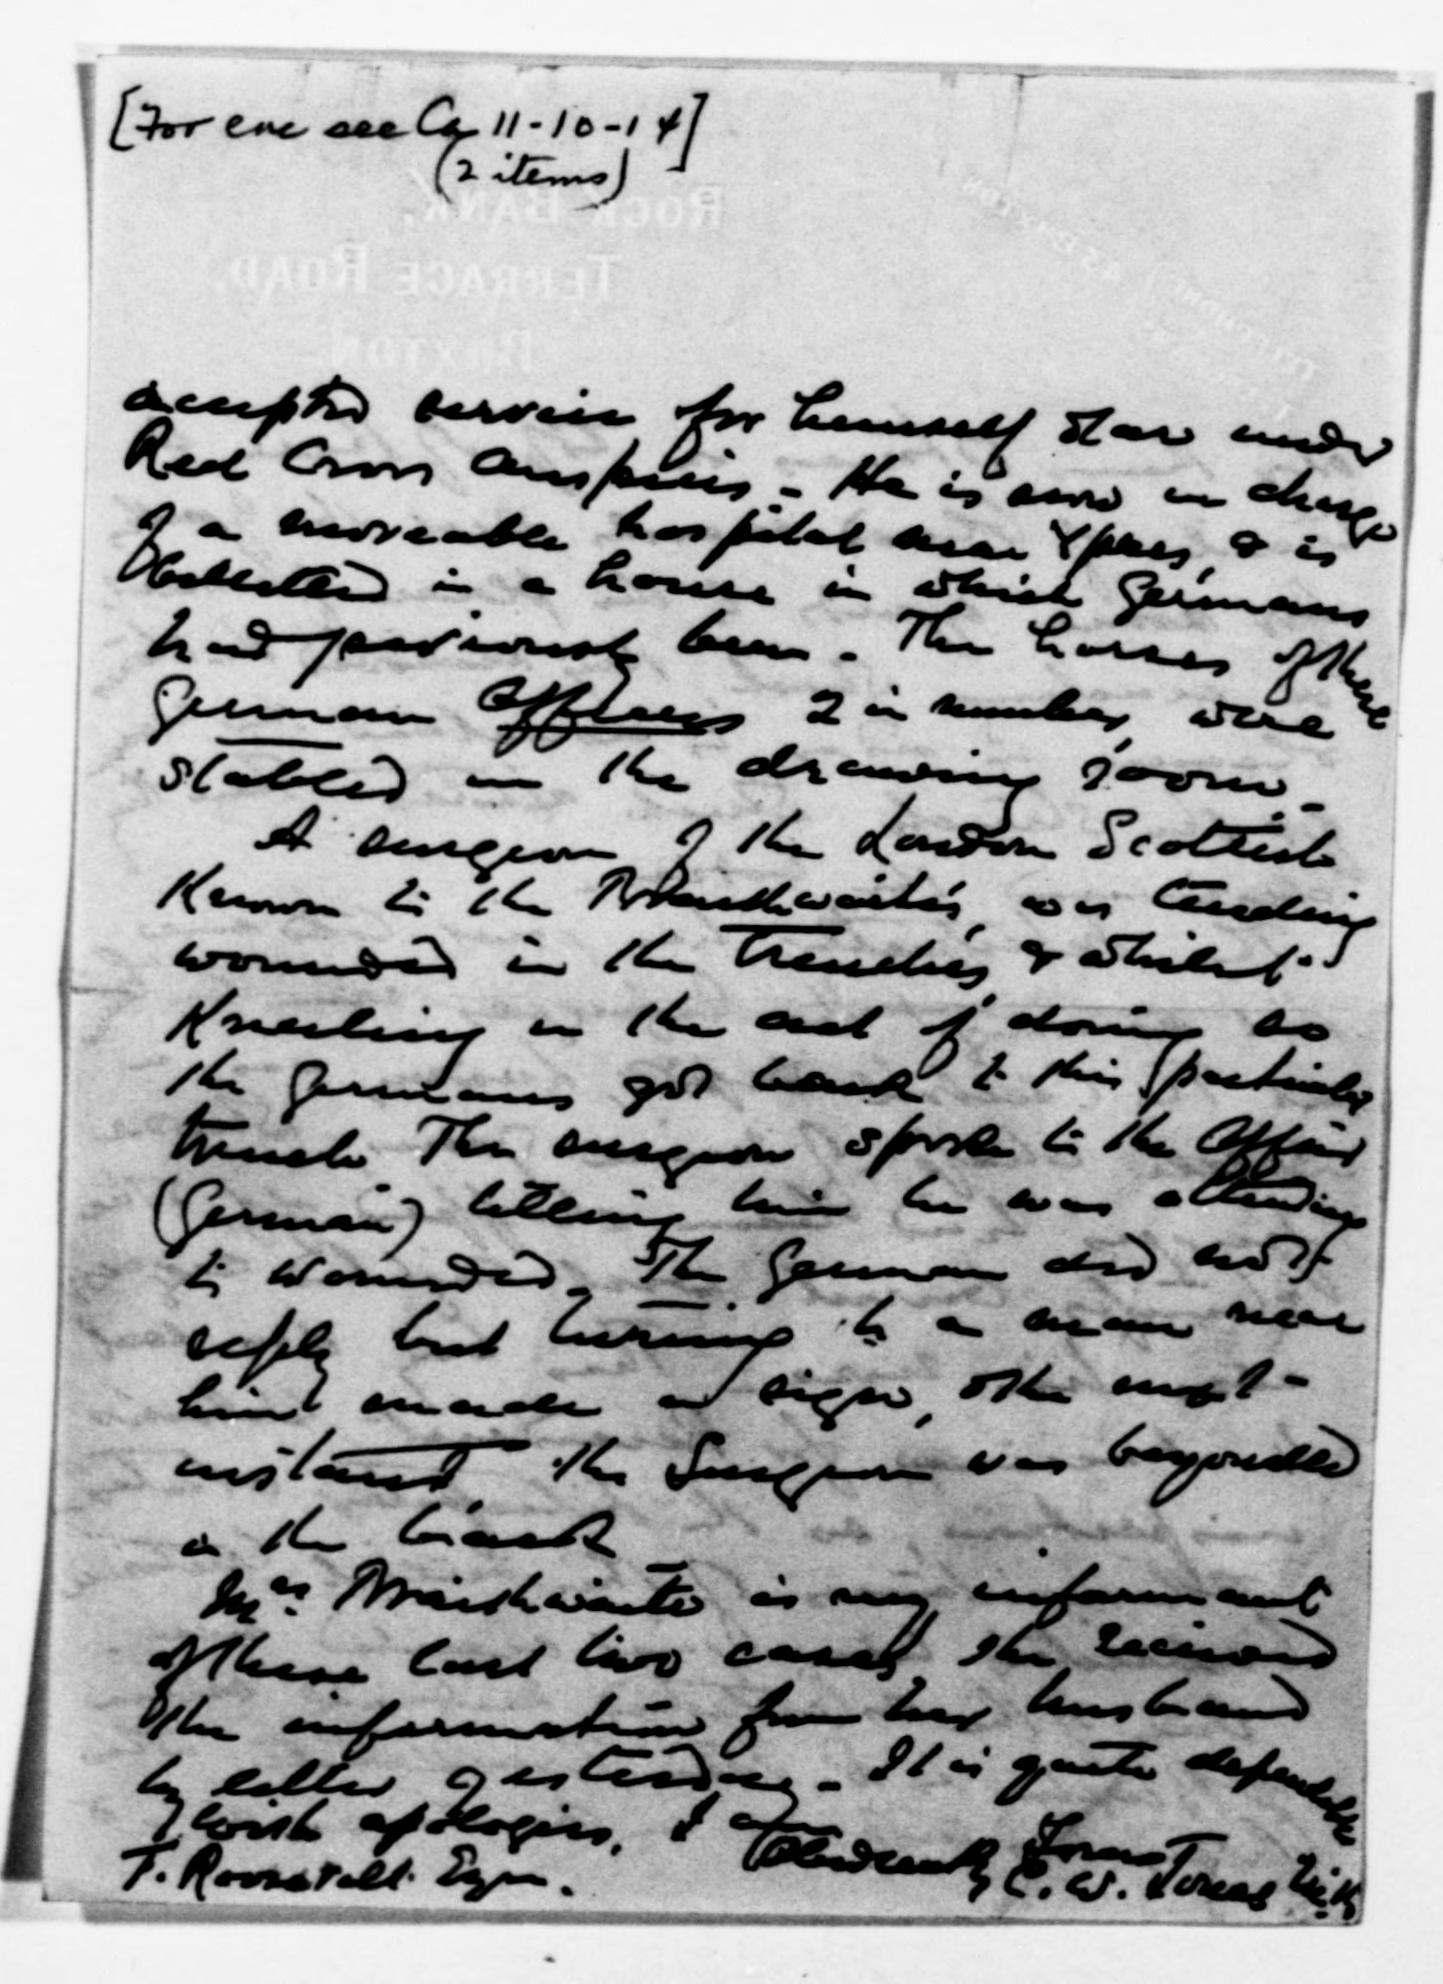 [For enc see Ca 11-10-14]
(2 items)
ROCK BANK,
TERRACE ROAD,
BUXTON.
accepted service for himself & car under
Red Cross auspices. He is now in charge
of a moveable hospital near Ypres, & is
billetted in a house in which Germans
had previously been. The horses of these
German Officers 2 in number, were
stabled in the drawing room.
A surgeon of the London Scottish
Known to the Braithwaites, was tending
wounded in the trenches, & whilst
Kneeling in the act of doing so
the Germans got back to this particular
trench. The surgeon spoke to the Officer
(German) telling him he was attending
to wounded. The German did not
reply but turning to a man near
him made a sign, & the next
instant the Surgeon was bayonetted
in the back
Mrs. Braithwaite is my informant
of these last two cases, she received
the information from her husband
by letter yesterday. It is quite dependable
with apologies, I am
Yours
T. Roosevelt. Esqre. Obediently C. W. Jones